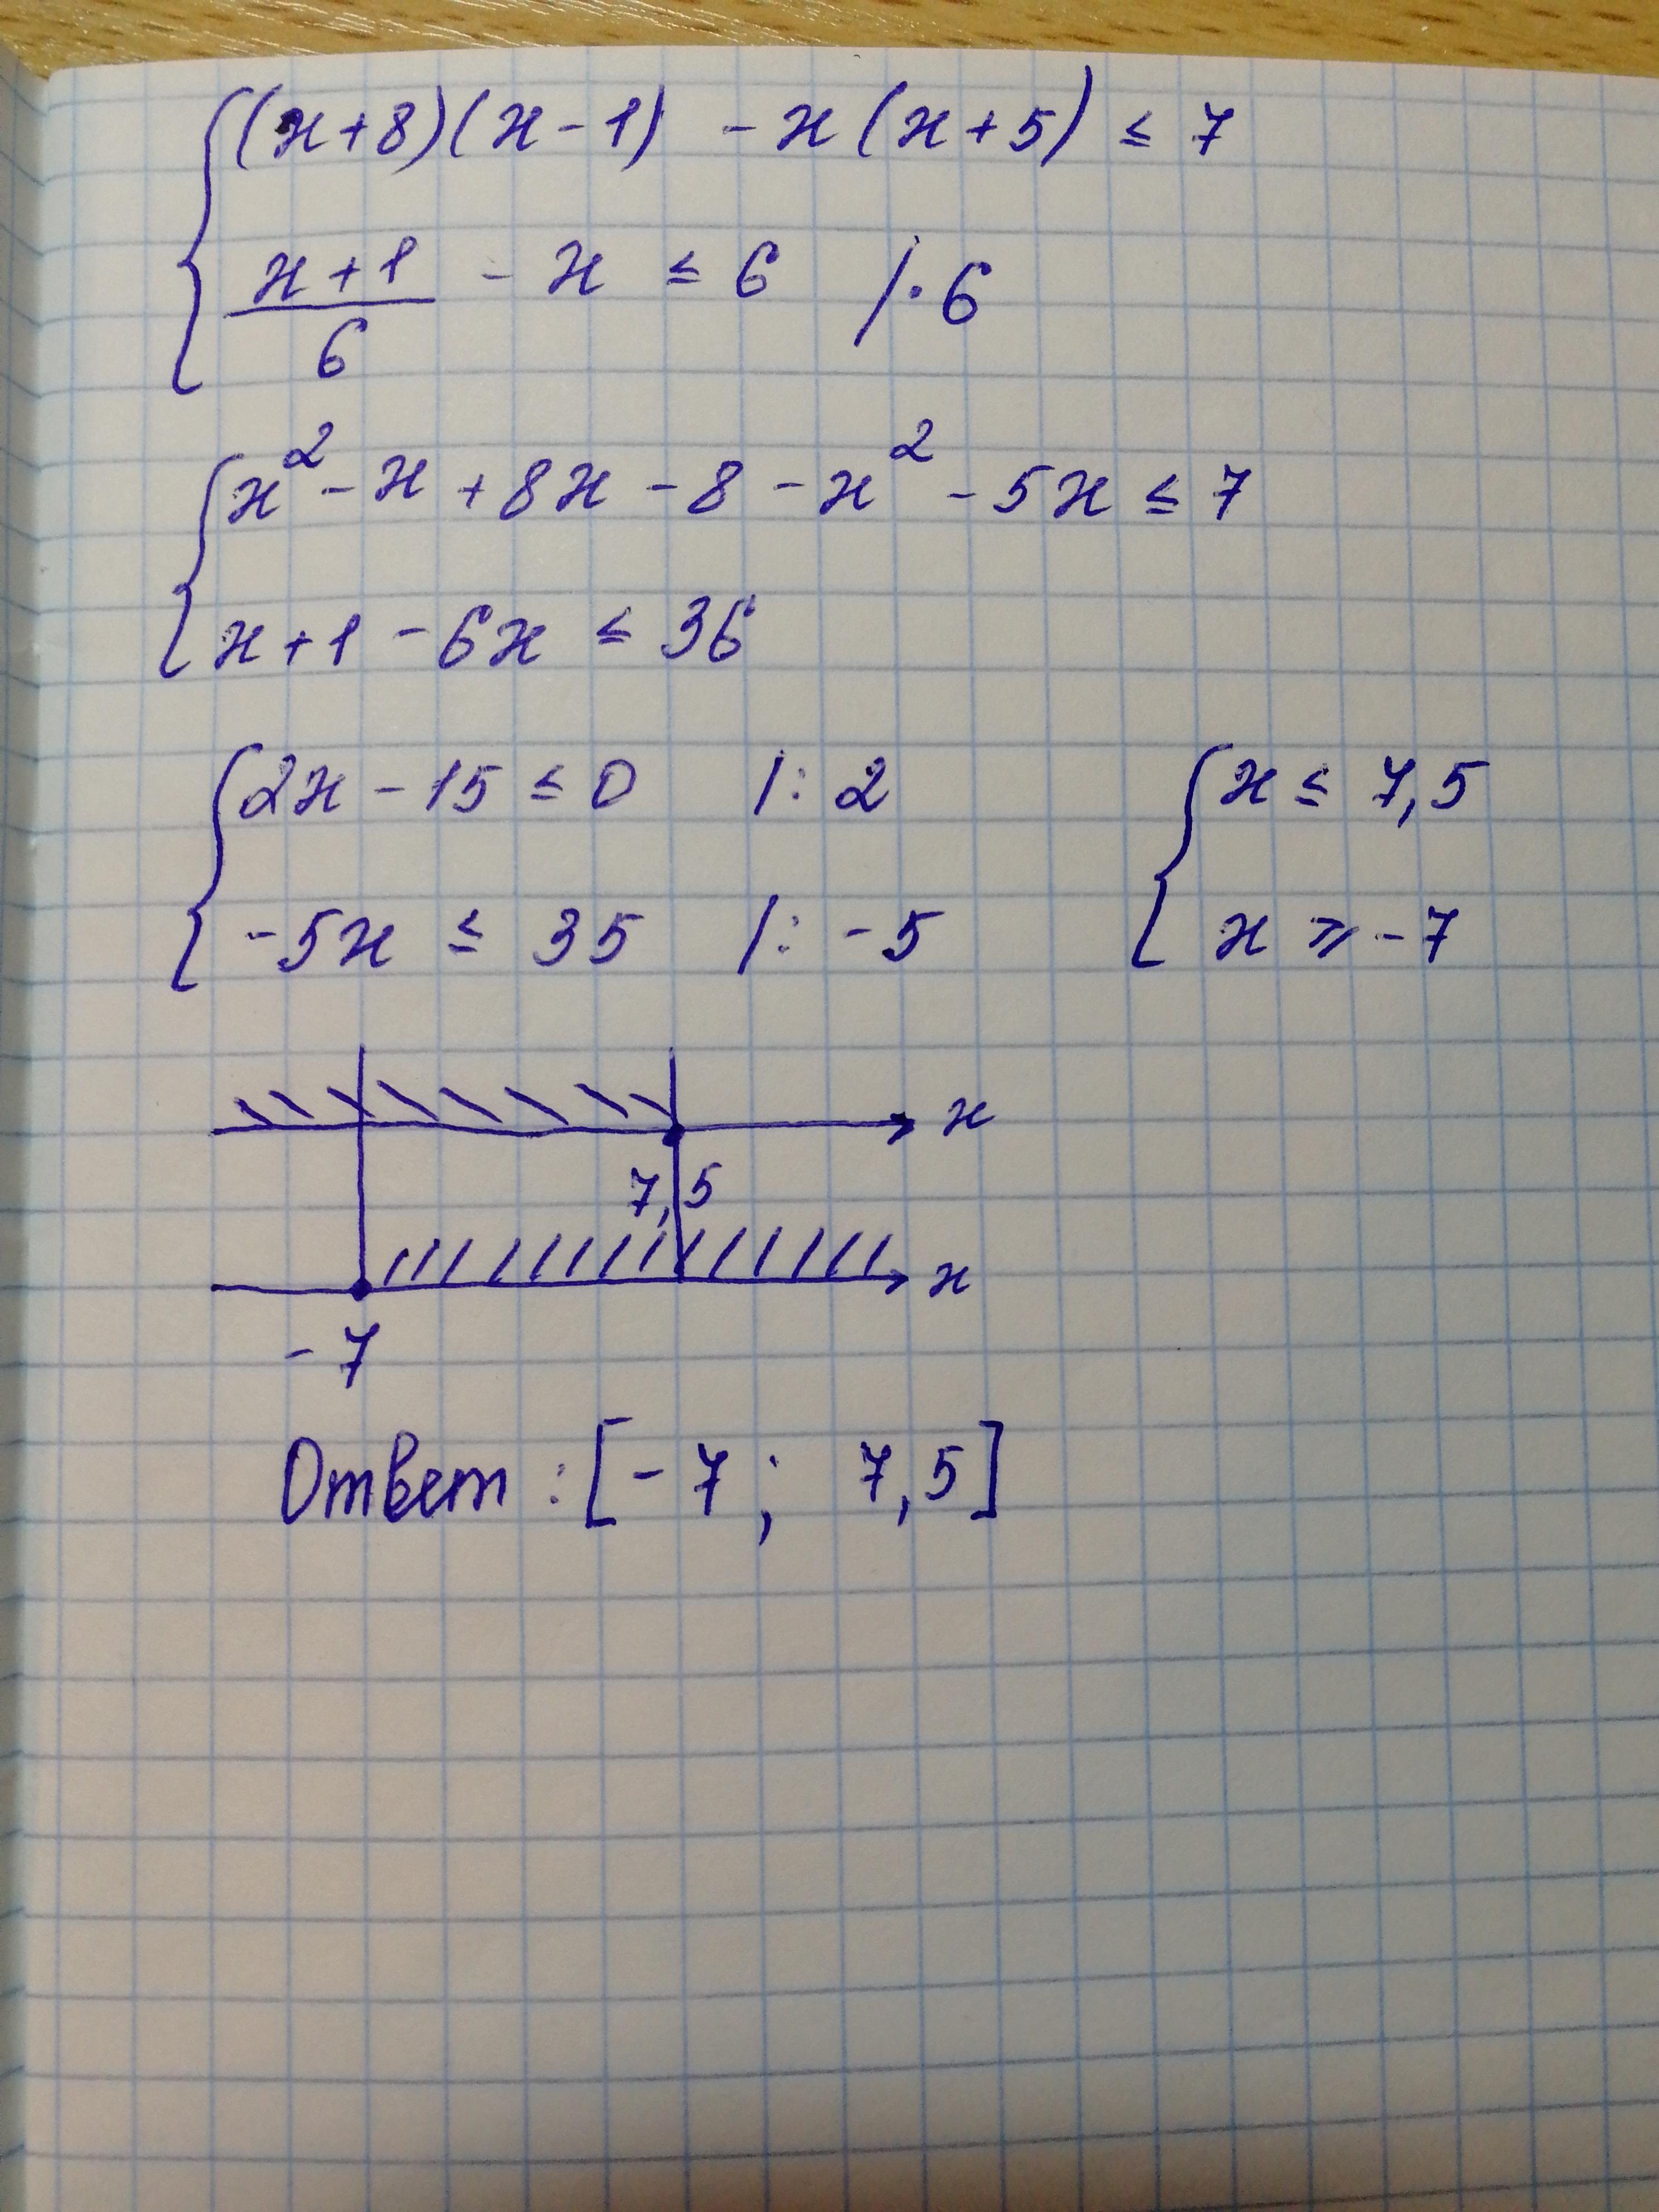 (x+8)(x-1) - x(x+5) ≤ 7
x+1/6 - x ≤ 6 /·6
x² - x + 8x - 8 - x² - 5x ≤ 7
x+1 - 6x ≤ 36
2x - 15 ≤ 0 /: 2 x ≤ 7,5
-5x ≤ 35 /: -5 x ⩾ -7
x
7,5
x
-7
Ответ: [-7; 7,5]